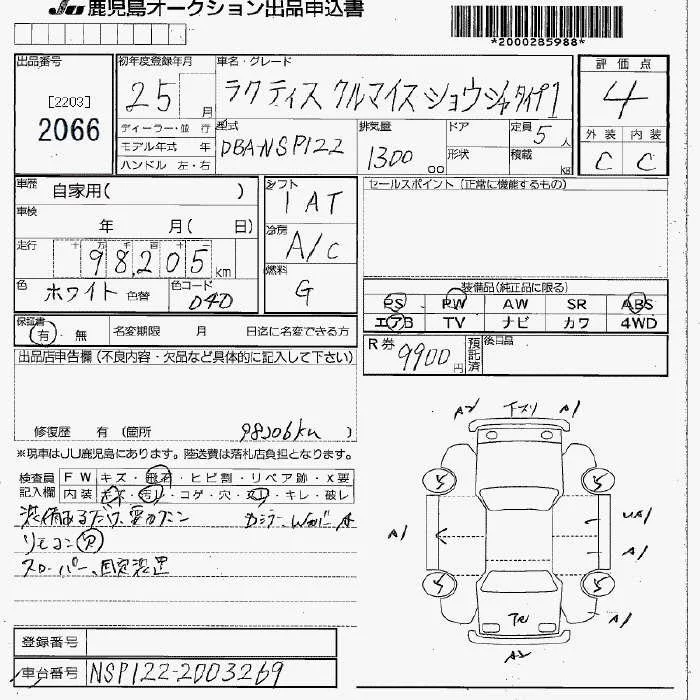 JU 鹿児島オークション出品申込書
*2000285988*
出品番号
[2203]
2066
初年度登録年月
25 月
ディーラー・並行
モデル年式 年
ハンドル 左・右
車名・グレード
ラクティス クルマイスショウシャタイプ1
型式
DBA-NSP122
排気量
1300 cc
ドア
形状
定員 5 人
積載 kg
評価点
4
外装 内装
C C
車歴 自家用( )
車検 年 月( 日)
走行 十 万 千 百 十 一
98,205 km
色 ホワイト 色替
色コード 040
シフト
1AT
冷房
A/C
燃料
G
セールスポイント(正常に機能するもの)
装備品(純正品に限る)
PS PW AW SR ABS
エアB TV ナビ カワ 4WD
保証書 有 無 名変期限 月 日迄に名変できる方
R券 9900円
預託済
後日品
出品店申告欄(不良内容・欠品など具体的に記入して下さい)
修復歴 有 (箇所 98206km )
※現車はJU鹿児島にあります。陸送費は落札店負担となります。
検査員記入欄
FW キズ・飛石・ヒビ割・リペア跡・X要
内装 キズ・汚レ・コゲ・穴・スレ・キレ・破レ
リモコン ア
スローパー、固定装置
A2 下スリ A1
A1
UA1
A1
A1
A2
登録番号
車台番号 NSP122-2003269